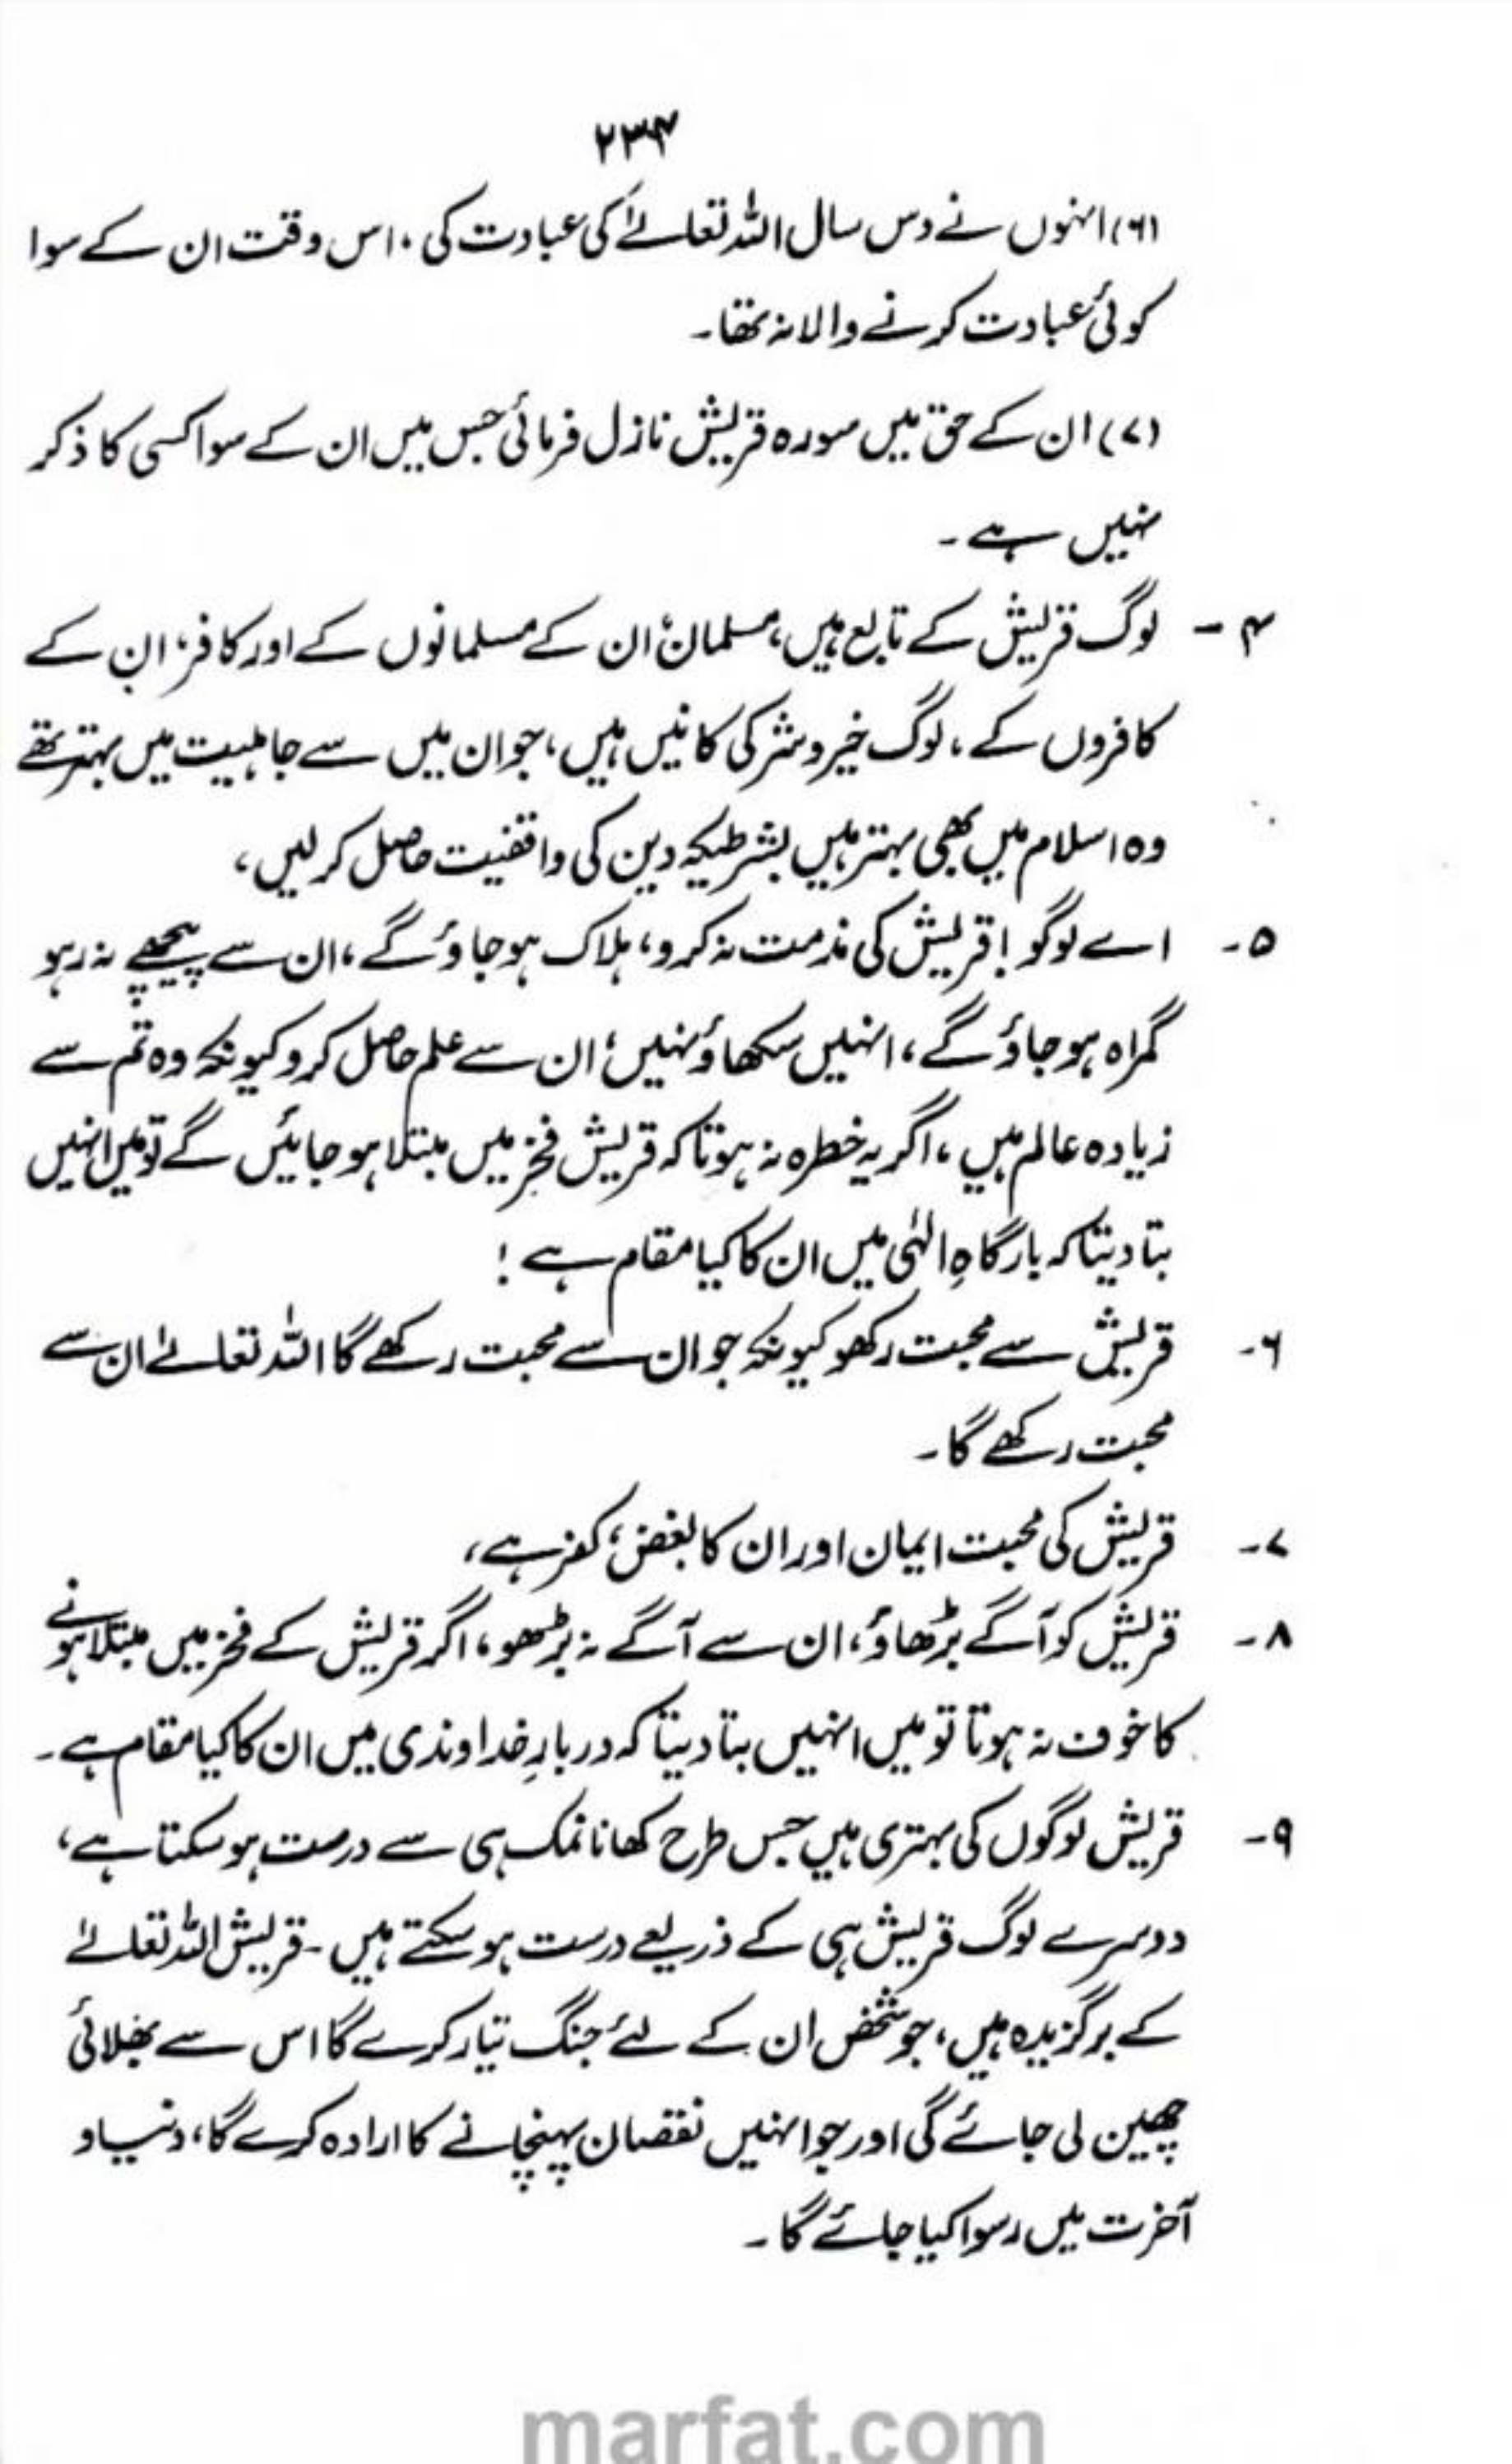 ۲۳۴
(۶) انہوں نے دس سال اللہ تعالےٰ کی عبادت کی، اس وقت ان کے سوا
کوئی عبادت کرنے والا نہ تھا۔
(۷) ان کے حق میں سورہ قریش نازل فرمائی جس میں ان کے سوا کسی کا ذکر
نہیں ہے۔
۴- لوگ قریش کے تابع ہیں، مسلمان، ان کے مسلمانوں کے اور کافر، ان کے
کافروں کے، لوگ خیر و شر کی کانیں ہیں، جو ان میں سے جاہلیت میں بہتر تھے
وہ اسلام میں بھی بہتر ہیں بشرطیکہ دین کی واقفیت حاصل کر لیں،
۵- اے لوگو! قریش کی مذمت نہ کرو، ہلاک ہو جاؤ گے، ان سے پیچھے نہ رہو
گمراہ ہو جاؤ گے، انہیں سکھاؤ نہیں، ان سے علم حاصل کرو کیونکہ وہ تم سے
زیادہ عالم ہیں، اگر یہ خطرہ نہ ہوتا کہ قریش فخر میں مبتلا ہو جائیں گے تو میں انہیں
بتا دیتا کہ بارگاہِ الٰہی میں ان کا کیا مقام ہے!
۶- قریش سے محبت رکھو کیونکہ جو ان سے محبت رکھے گا اللہ تعالےٰ ان سے
محبت رکھے گا۔
۷- قریش کی محبت ایمان اور ان کا بغض، کفر ہے،
۸- قریش کو آگے بڑھاؤ، ان سے آگے نہ بڑھو، اگر قریش کے فخر میں مبتلا ہونے
کا خوف نہ ہوتا تو میں انہیں بتا دیتا کہ دربارِ خداوندی میں ان کا کیا مقام ہے۔
۹- قریش لوگوں کی بہتری ہیں جس طرح کھانا نمک ہی سے درست ہو سکتا ہے،
دوسرے لوگ قریش ہی کے ذریعے درست ہو سکتے ہیں۔ قریش اللہ تعالےٰ
کے برگزیدہ ہیں، جو شخص ان کے لئے جنگ تیار کرے گا اس سے بھلائی
چھین لی جائے گی اور جو انہیں نقصان پہنچانے کا ارادہ کرے گا، دنیا و
آخرت میں رسوا کیا جائے گا۔
marfat.com